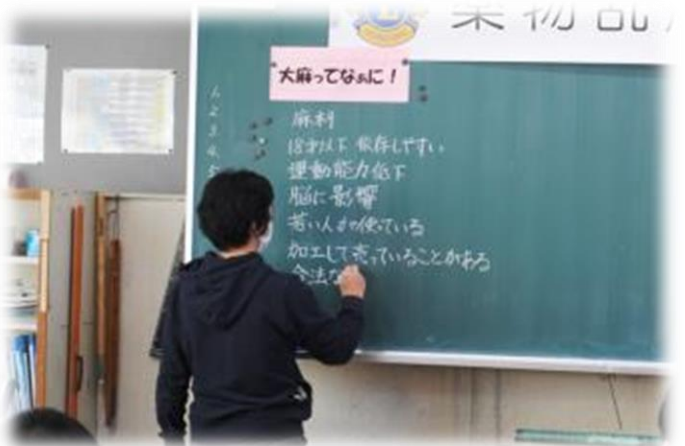 薬物乱
大麻ってなぁに!
1.
2.
3.
4.
5.
麻利
18才以下 依存しやすい
運動能力低下
脳に影響
若い人が使っている
加工して売っていることがある
合法な